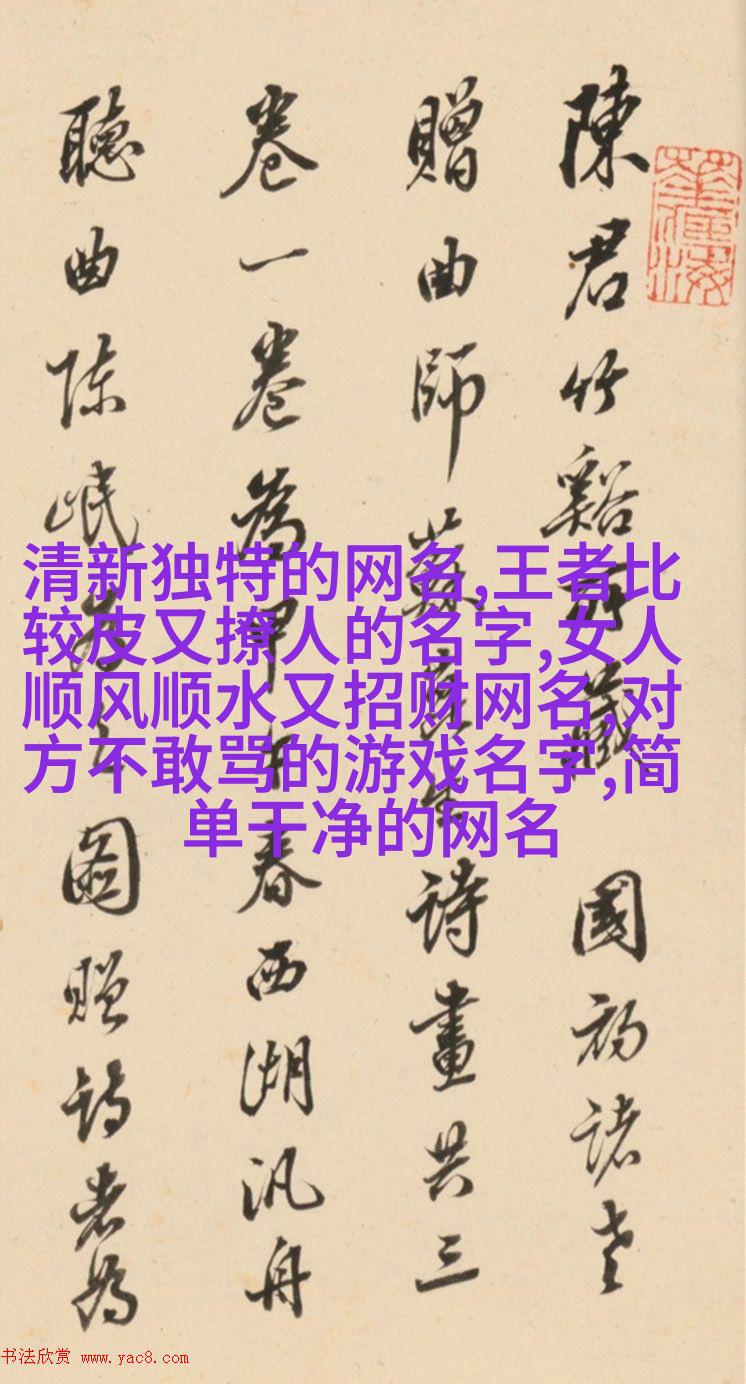 陳君竹谿所藏 國初諸老
贈曲師蘇崑生詩畫共三
卷一卷為甲午春西湖汎舟
聽曲陳岷為之圖贈詩者為
清新独特的网名,王者比
较皮又撩人的名字,女人
顺风顺水又招财网名,对
方不敢骂的游戏名字,简
单干净的网名
书法欣赏 www.yac8.com